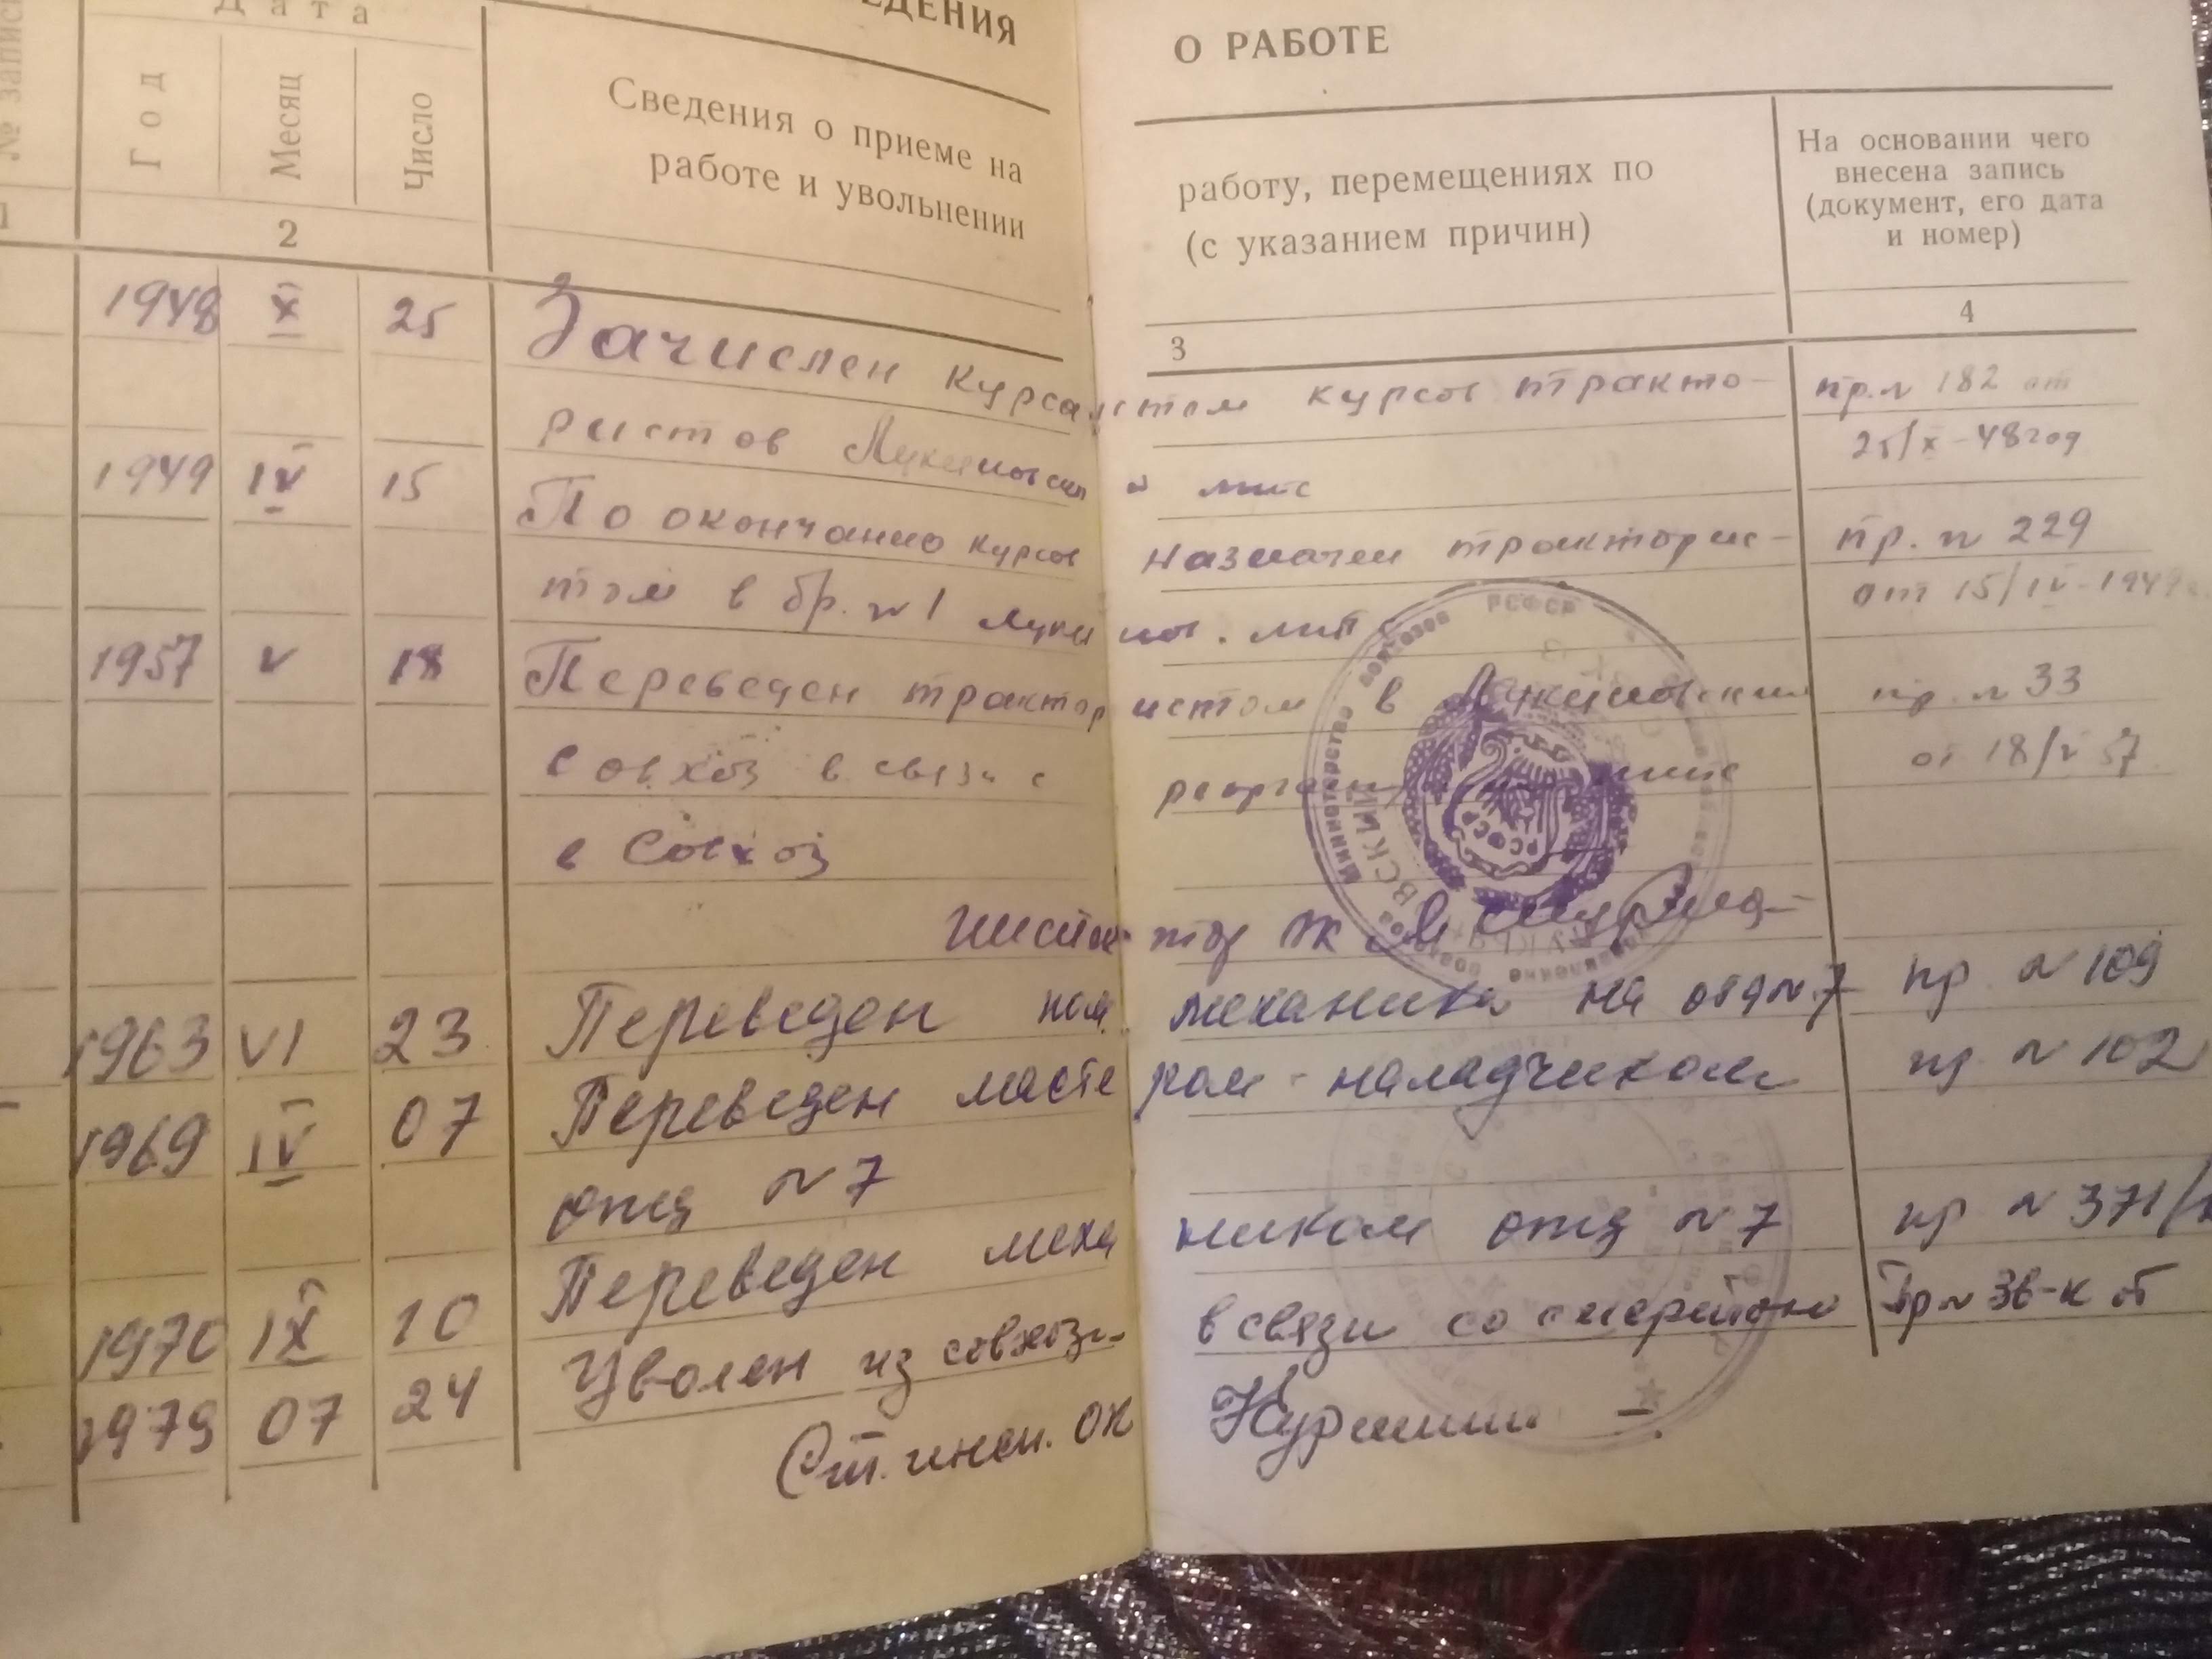 Дата
ЕДЕНИЯ
О РАБОТЕ
№ запис
Год
Месяц
Число
Сведения о приеме на
работе и увольнении
работу, перемещениях по
(с указанием причин)
На основании чего
внесена запись
(документ, его дата
и номер)
1
2
3
4
1948 X 25 Зачислен курсантом курсов тракто- пр. № 182 от
ристов Лукиновской мтс 25/X-48 год
1949 IV 15 По окончанию курсов назначен трактори- пр. № 229
том в бр. №1 Лукинов. мтс от 15/IV-1949
1957 V 18 Переведен трактористом в Лукиновский пр. № 33
совхоз в связи с от 18/V 57
в совхоз
1963 VI 23 Переведен пом. механика на отд №7 пр № 109
1969 IV 07 Переведен мастером-наладчиком пр № 102
отд №7
1970 IX 10 Переведен механиком отд №7 пр № 371/
1979 07 24 Уволен из совхоза в связи со смертью Пр № 38-к от
Ст. инсп. ОК
РСФСР
Министерство совхозов
РСФСР